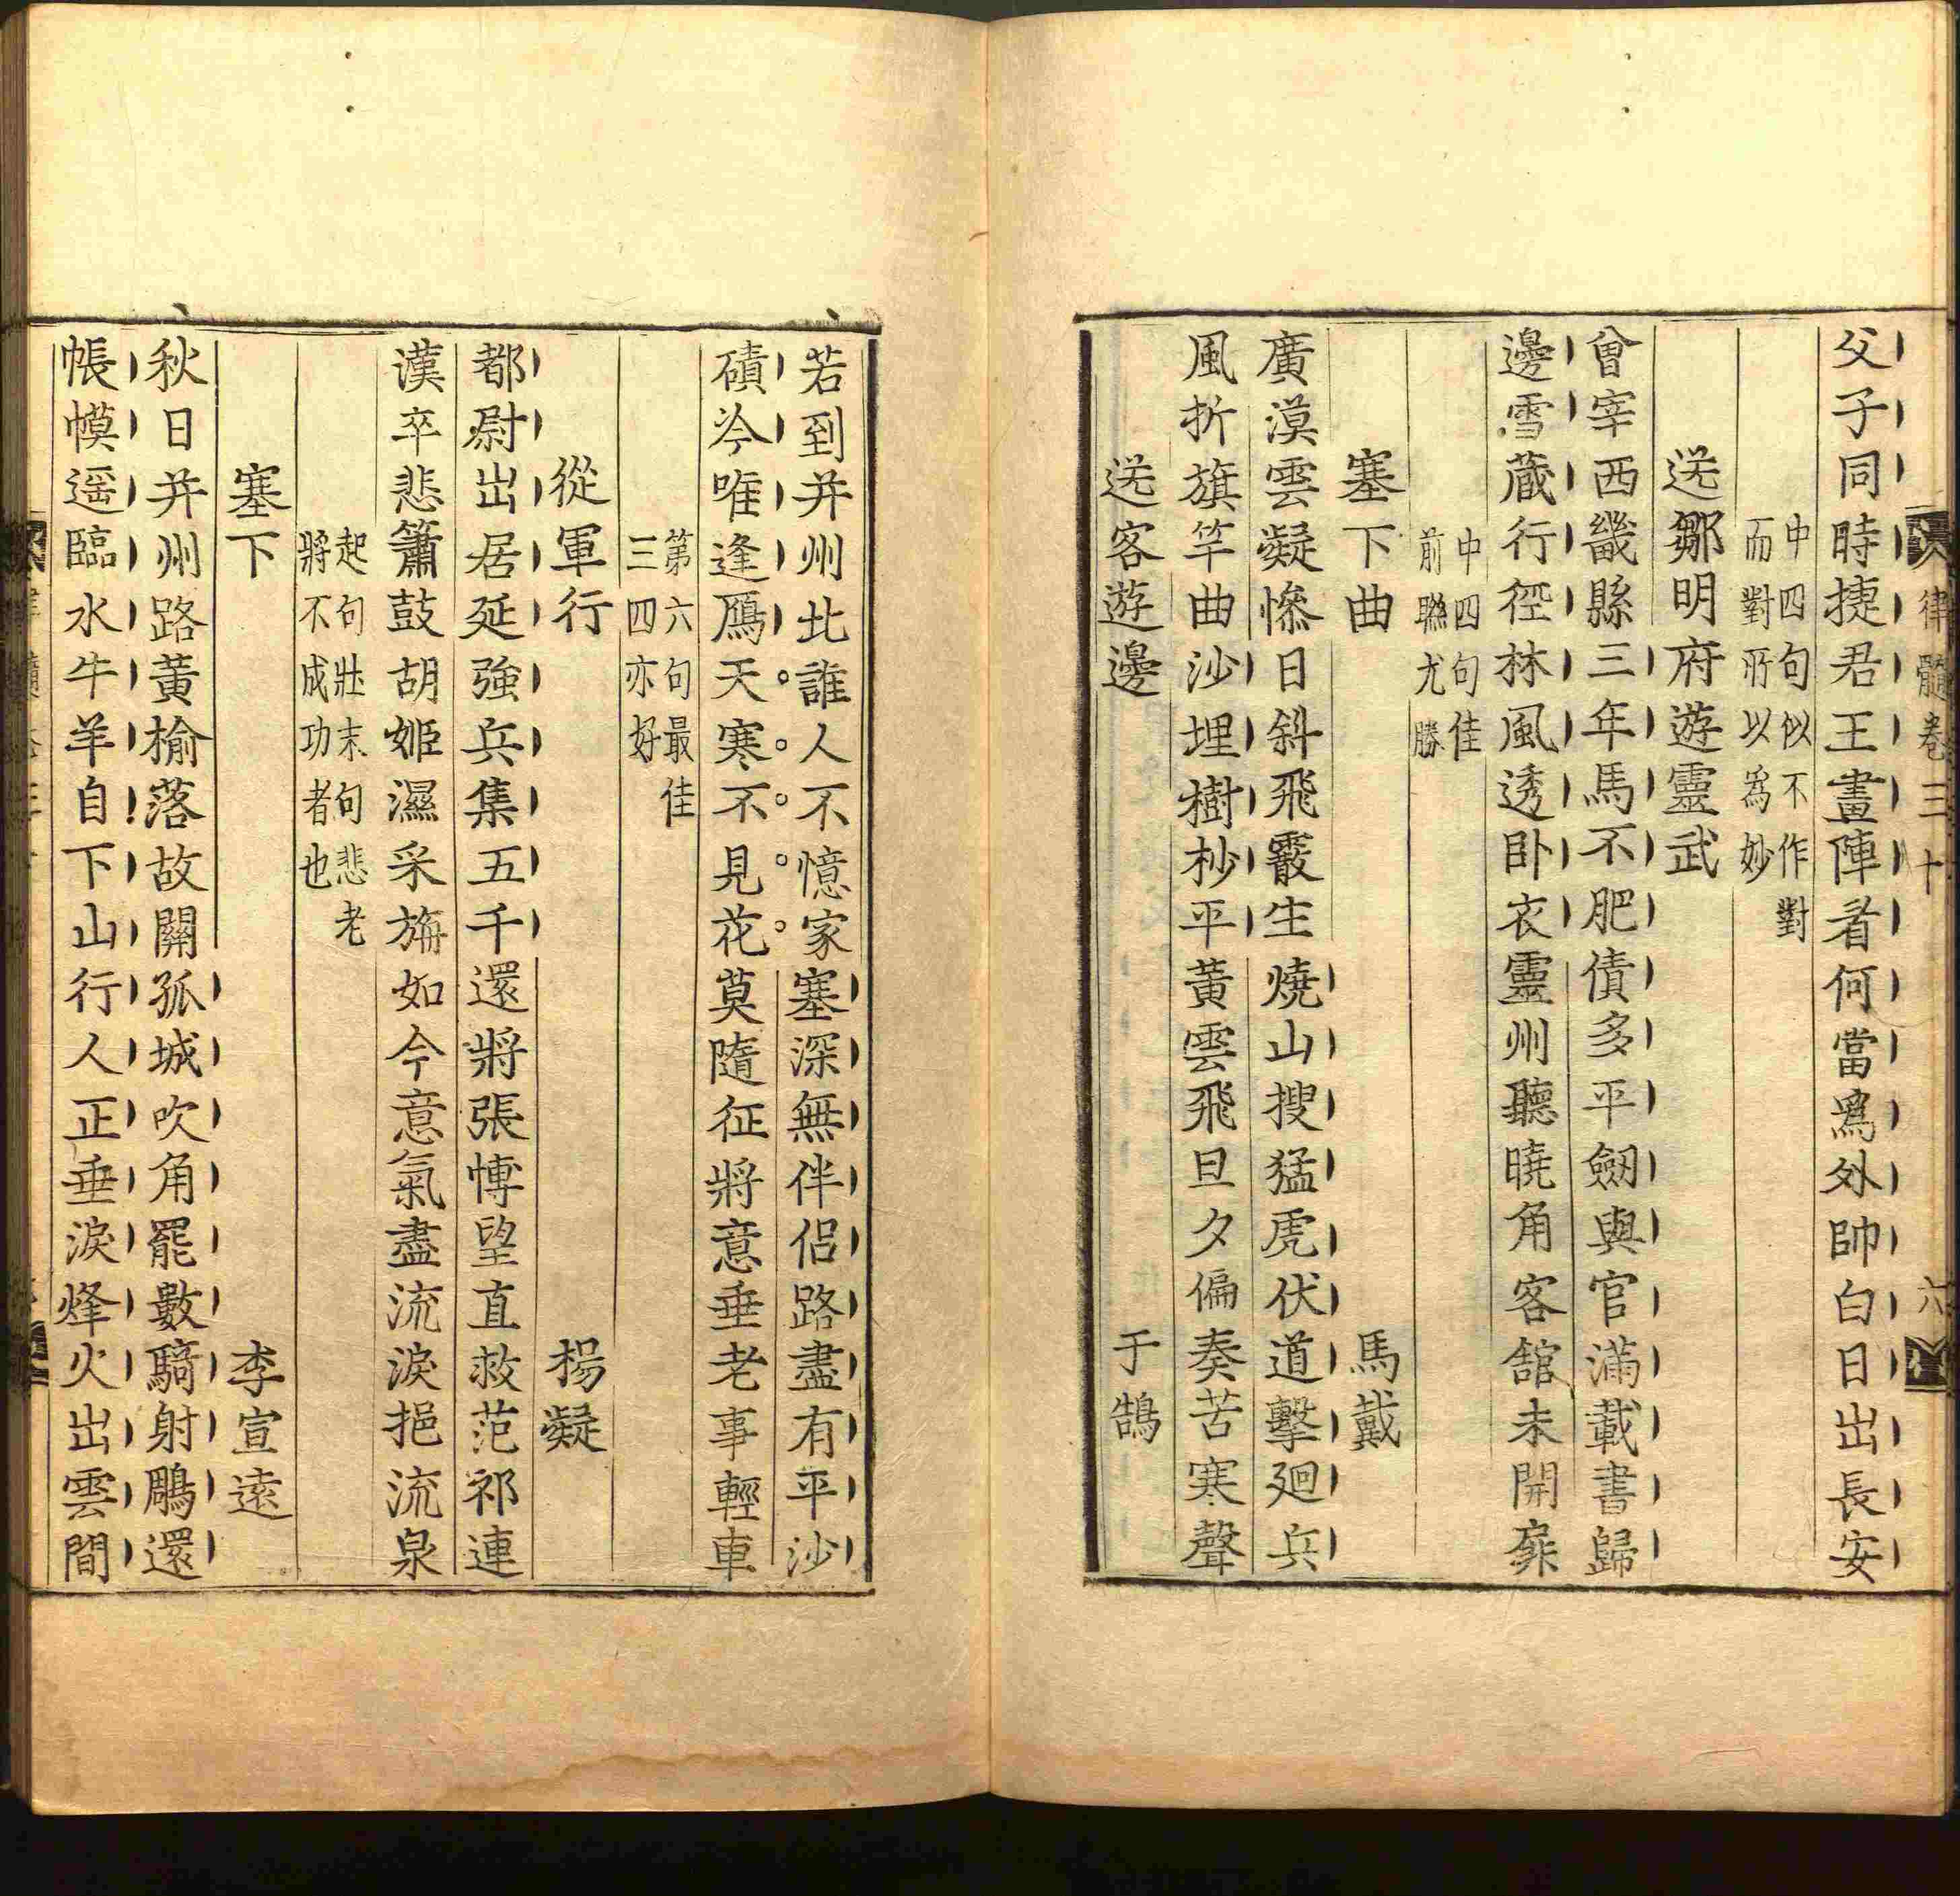 律髓卷三十 六
父子同時捷君王畫陣看何當爲外帥白日出長安
中四句似不作對
而對所以爲妙
送鄒明府遊靈武
曾宰西畿縣三年馬不肥債多平劒與官滿載書歸
邊雪藏行徑林風透卧衣靈州聽曉角客舘未開扉
中四句佳
前聮尤勝
塞下曲 馬戴
廣漠雲凝慘日斜飛霰生燒山搜猛虎伏道擊廻兵
風折旗竿曲沙埋樹杪平黃雲飛旦夕偏奏苦寒聲
送客遊邊 于鵠
若到并州北誰人不憶家塞深無伴侣路盡有平沙
磧冷唯逢鴈天寒不見花莫隨征將意垂老事輕車
第六句最佳
三四亦好
從軍行 楊凝
都尉出居延強兵集五千還將張博望直救范祁連
漢卒悲簫鼓胡姬濕采旃如今意氣盡流淚挹流泉
起句壯末句悲老
將不成功者也
塞下 李宣遠
秋日并州路黃榆落故關孤城吹角罷數騎射鵰還
帳幙遥臨水牛羊自下山行人正垂淚烽火出雲間